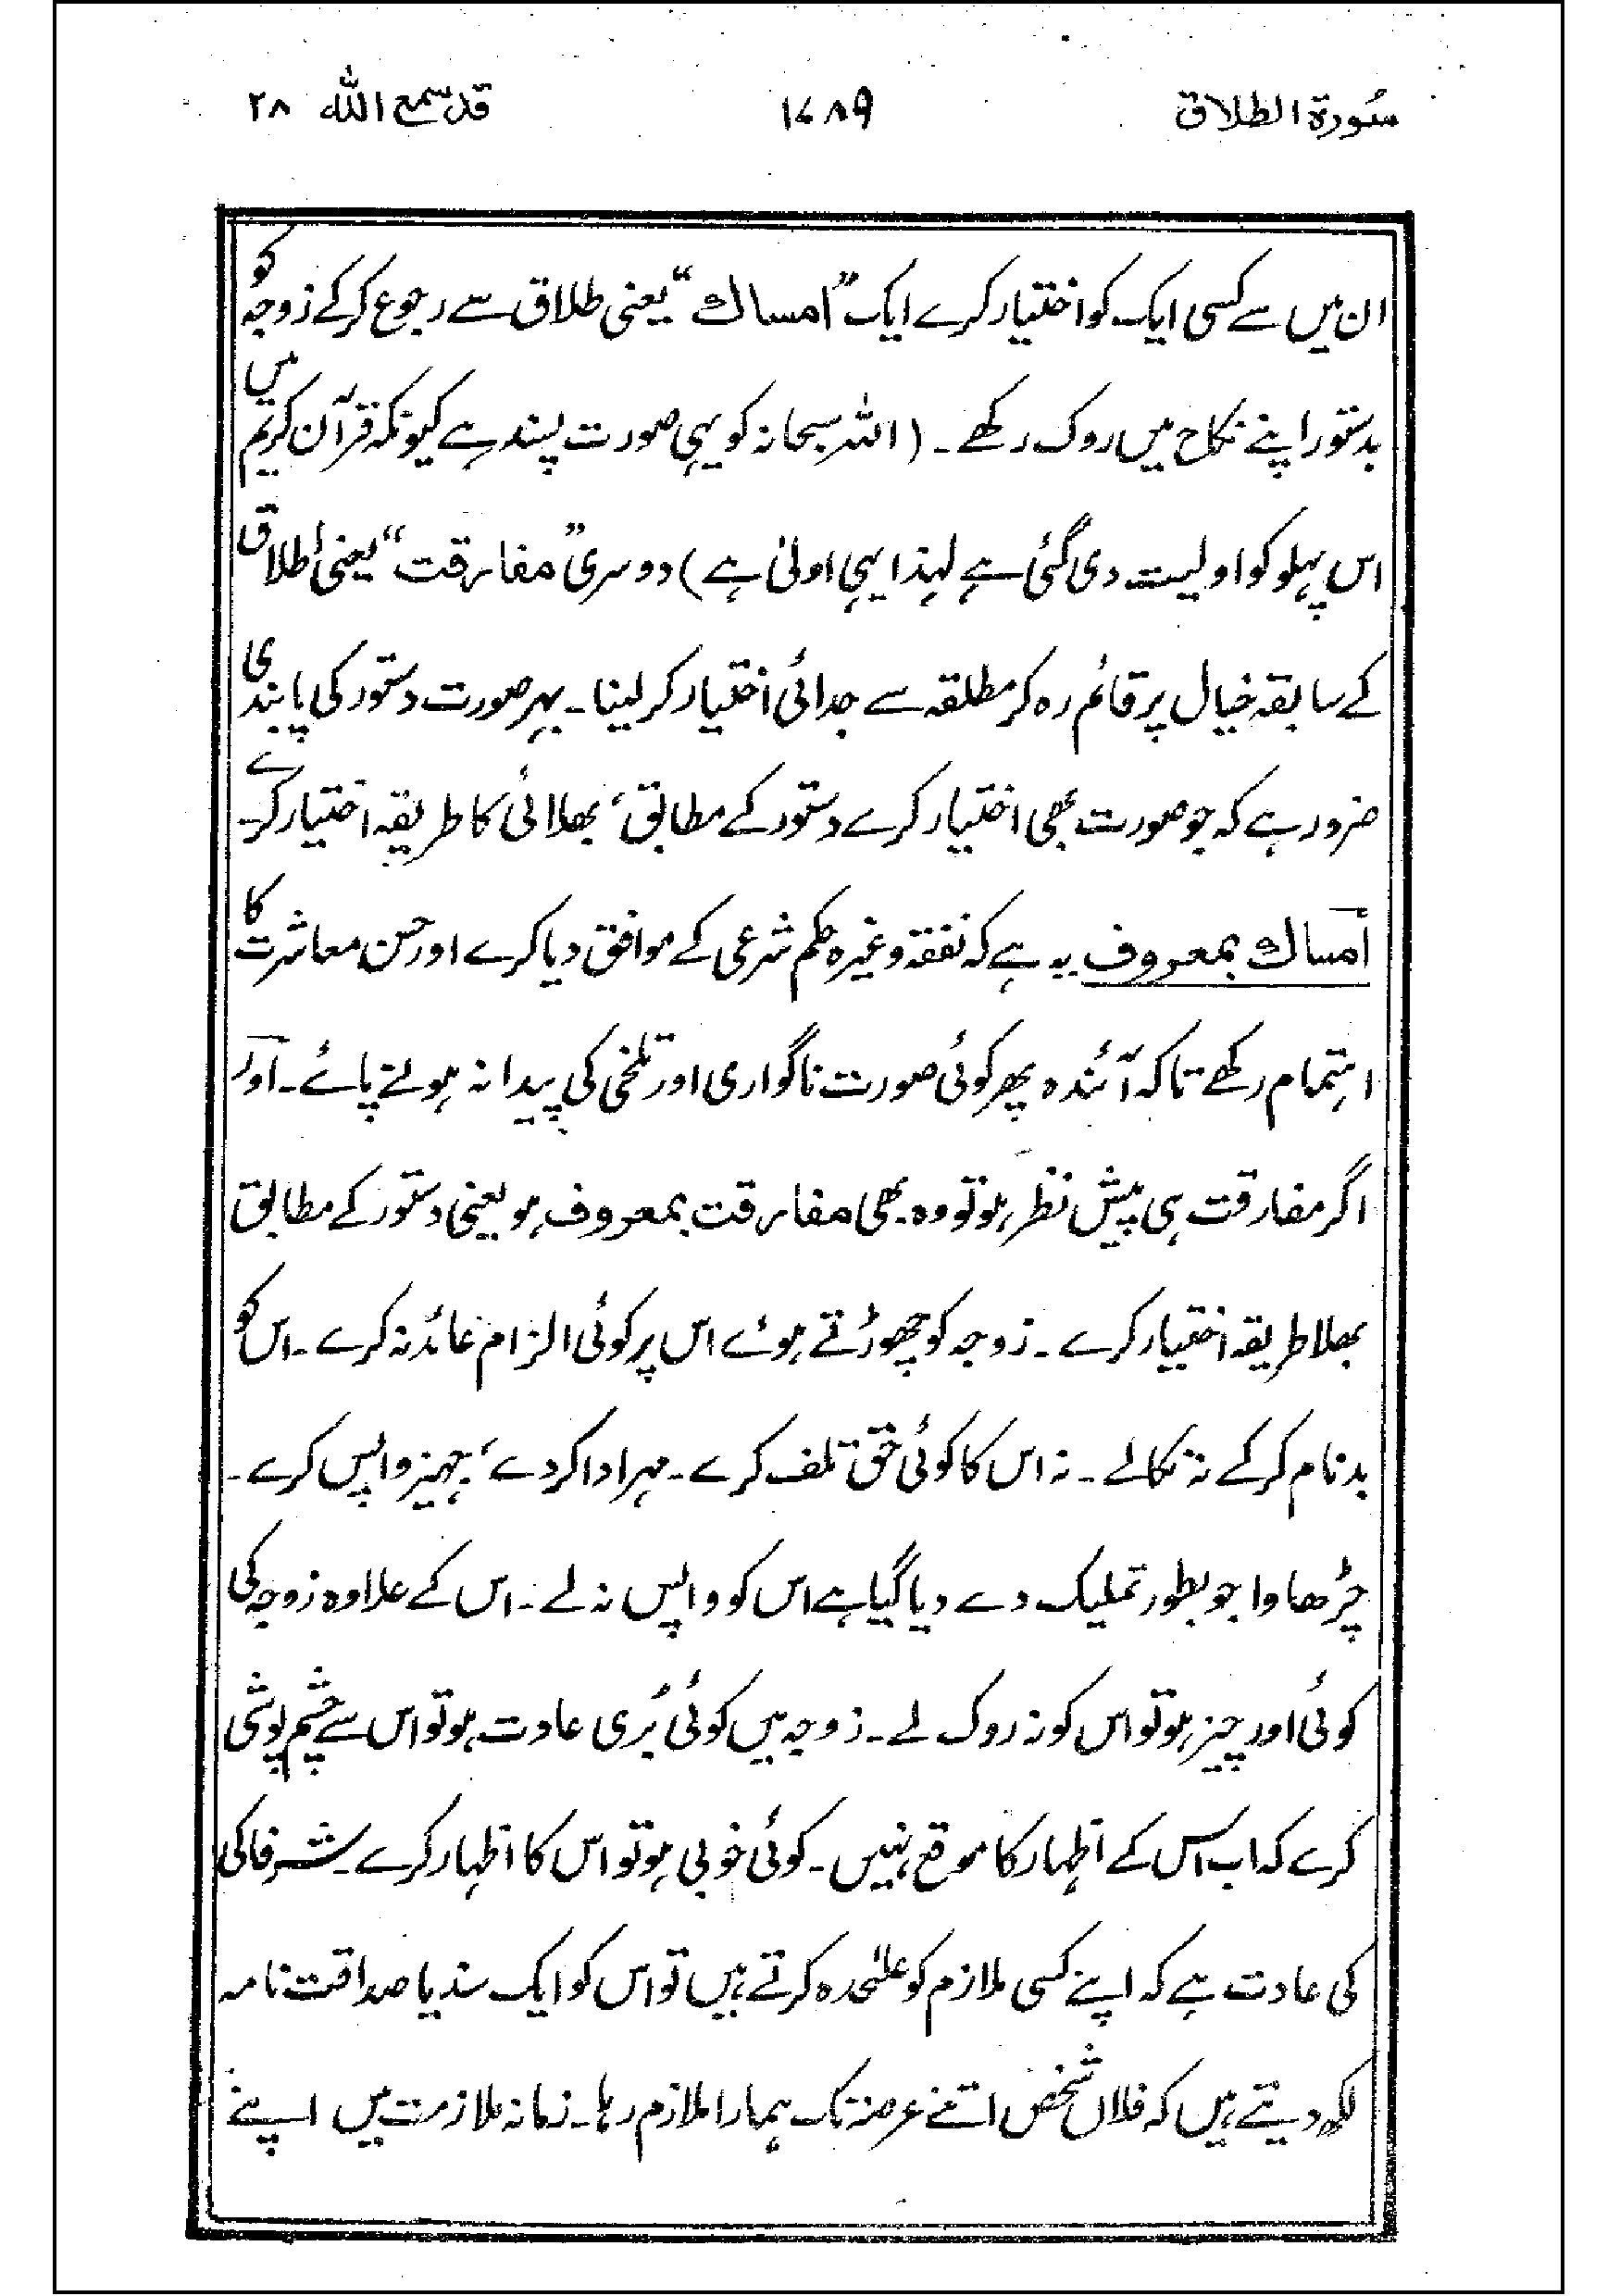 سُورة الطلاق ۱۷۸۹ قد سمع الله ۲۸
ان میں سے کسی ایک کو اختیار کرے ایک ”امساك“ یعنی طلاق سے رجوع کر کے زوجہ کو
بدستور اپنے نکاح میں روک رکھے ۔ (اللہ سبحانہ کو یہی صورت پسند ہے کیونکہ قرآن کریم میں
اس پہلو کو اولیت دی گئی ہے لہٰذا یہی اولیٰ ہے) دوسری ”مفارقت“ یعنی طلاق
کے سابقہ خیال پر قائم رہ کر مطلقہ سے جدائی اختیار کر لینا ۔ بہر صورت دستور کی پابندی
ضرور ہے کہ جو صورت بھی اختیار کرے دستور کے مطابق، بھلائی کا طریقہ اختیار کرے
امساك بمعروف یہ ہے کہ نفقہ وغیرہ حکم شرعی کے موافق دیا کرے اور حسن معاشرت کا
اہتمام رکھے تاکہ آئندہ پھر کوئی صورت ناگواری اور تلخی کی پیدا نہ ہونے پائے ۔ اور
اگر مفارقت ہی پیش نظر ہو تو وہ بھی مفارقت بمعروف ہو یعنی دستور کے مطابق
بھلا طریقہ اختیار کرے ۔ زوجہ کو چھوڑتے ہوئے اس پر کوئی الزام عائد نہ کرے ۔ اس کو
بدنام کر کے نہ نکالے ۔ نہ اس کا کوئی حق تلف کرے ۔ مہر ادا کر دے، جہیز واپس کرے ۔
چڑھاوا جو بطور تملیک دے دیا گیا ہے اس کو واپس نہ لے ۔ اس کے علاوہ زوجہ کی
کوئی اور چیز ہو تو اس کو نہ روک لے ۔ زوجہ میں کوئی بُری عادت ہو تو اس سے چشم پوشی
کرے کہ اب اس کے اظہار کا موقع نہیں ۔ کوئی خوبی ہو تو اس کا اظہار کرے ۔ شرفا کی
کی عادت ہے کہ اپنے کسی ملازم کو علیٰحدہ کرتے ہیں تو اس کو ایک سند یا صداقت نامہ
لکھ دیتے ہیں کہ فلاں شخص اتنے عرصہ تک ہمارا ملازم رہا ۔ زمانہ ملازمت میں اپنے